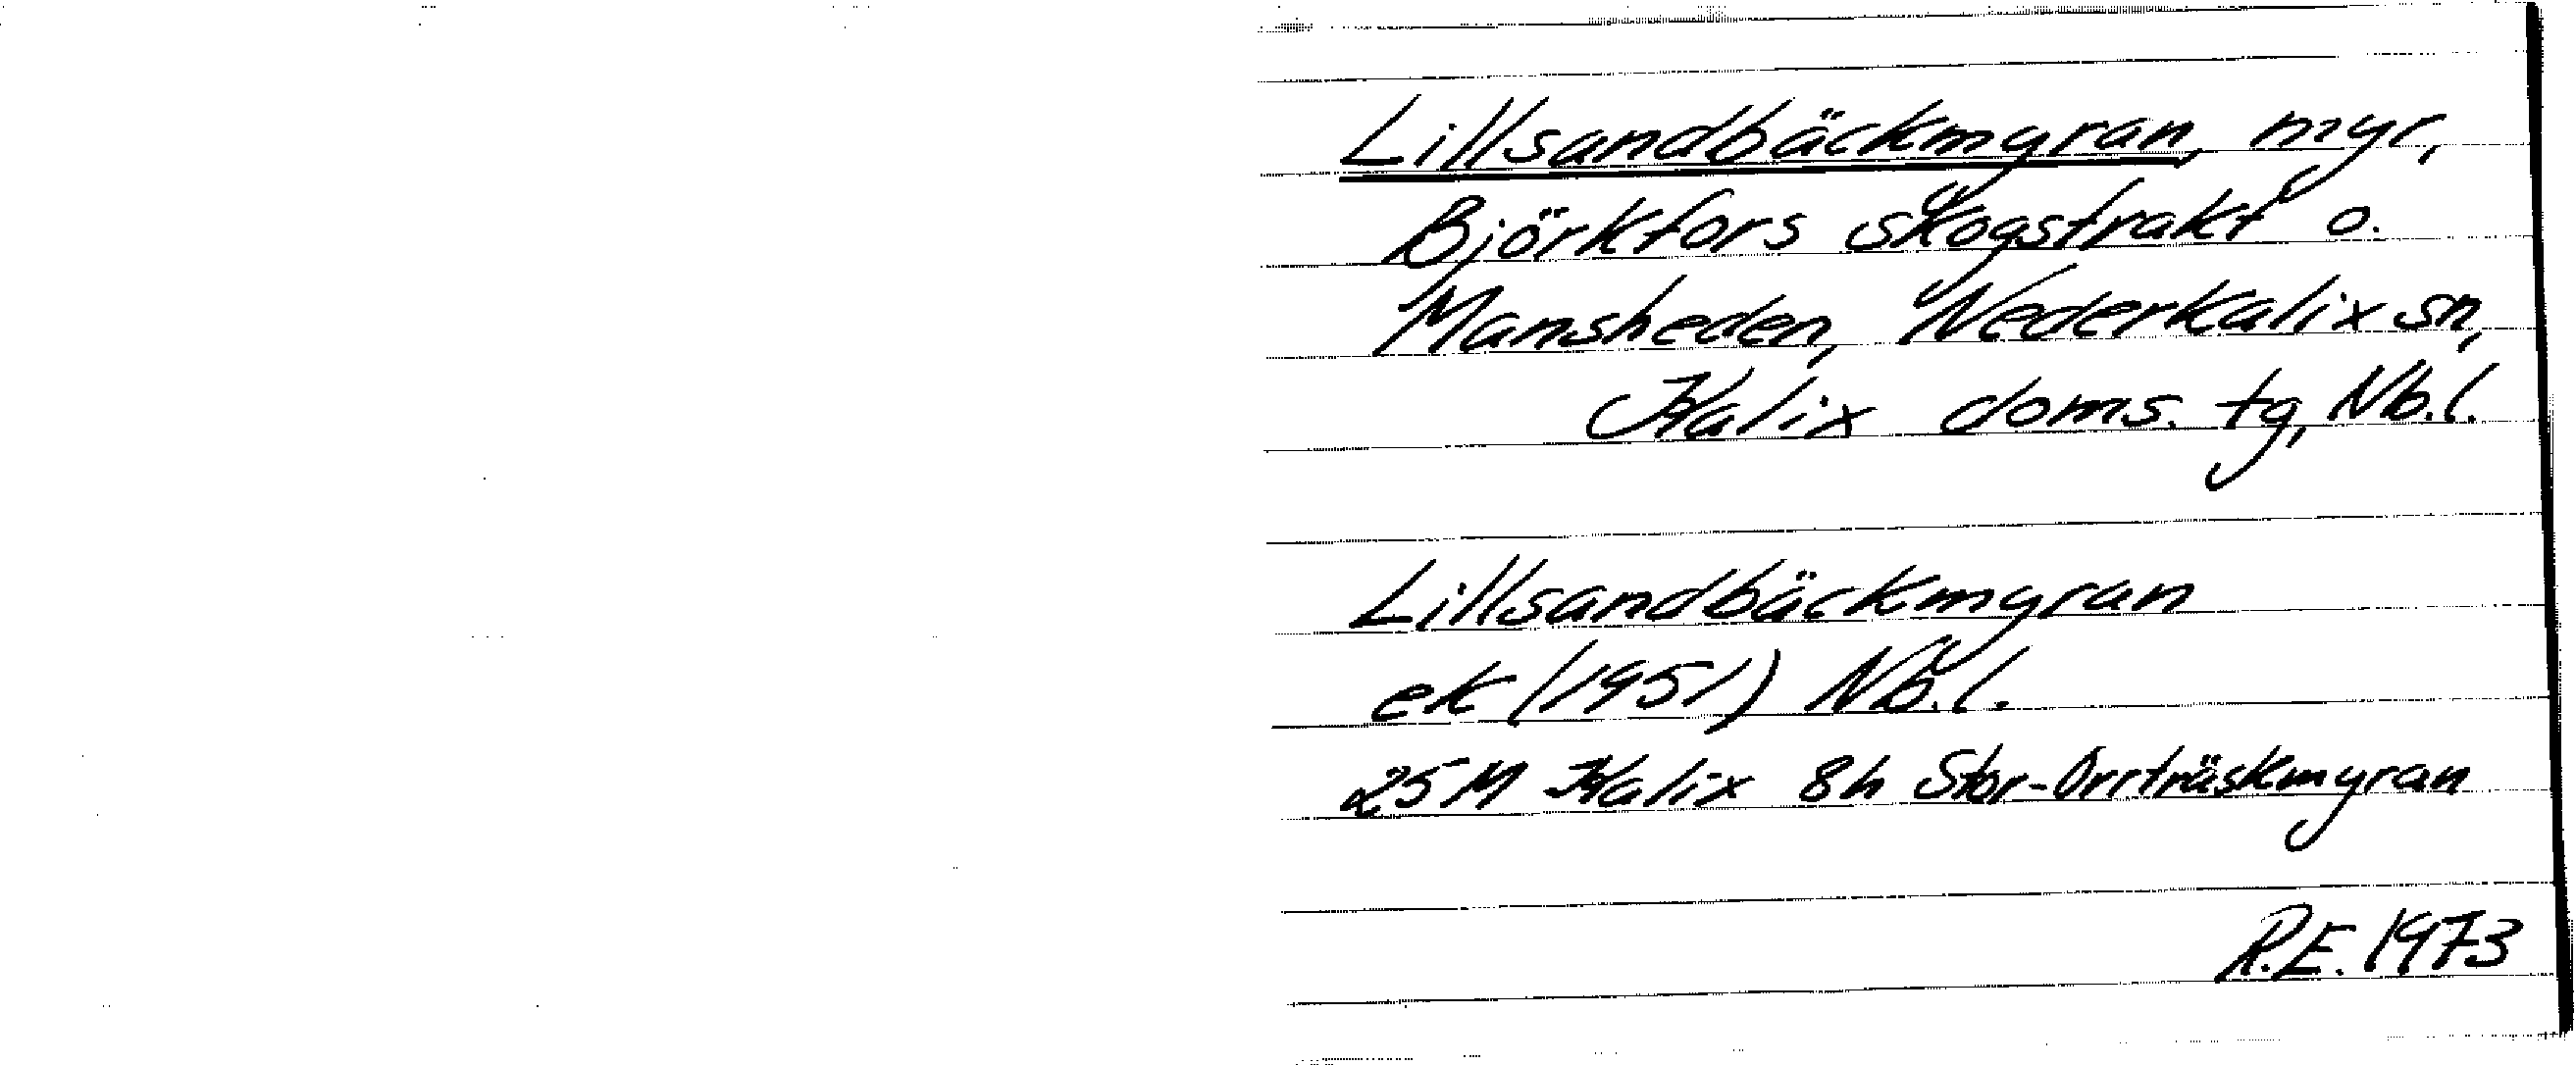 Lillsandbäckmyran, myr,
Björkfors skogstrakt o.
Mansheden, Nederkalix sn,
Kalix doms. tg, Nb.l.
Lillsandbäckmyran
ek (1951) Nb.l.
25M Kalix 8h Stor-Orrträskmyran
R.E. 1973